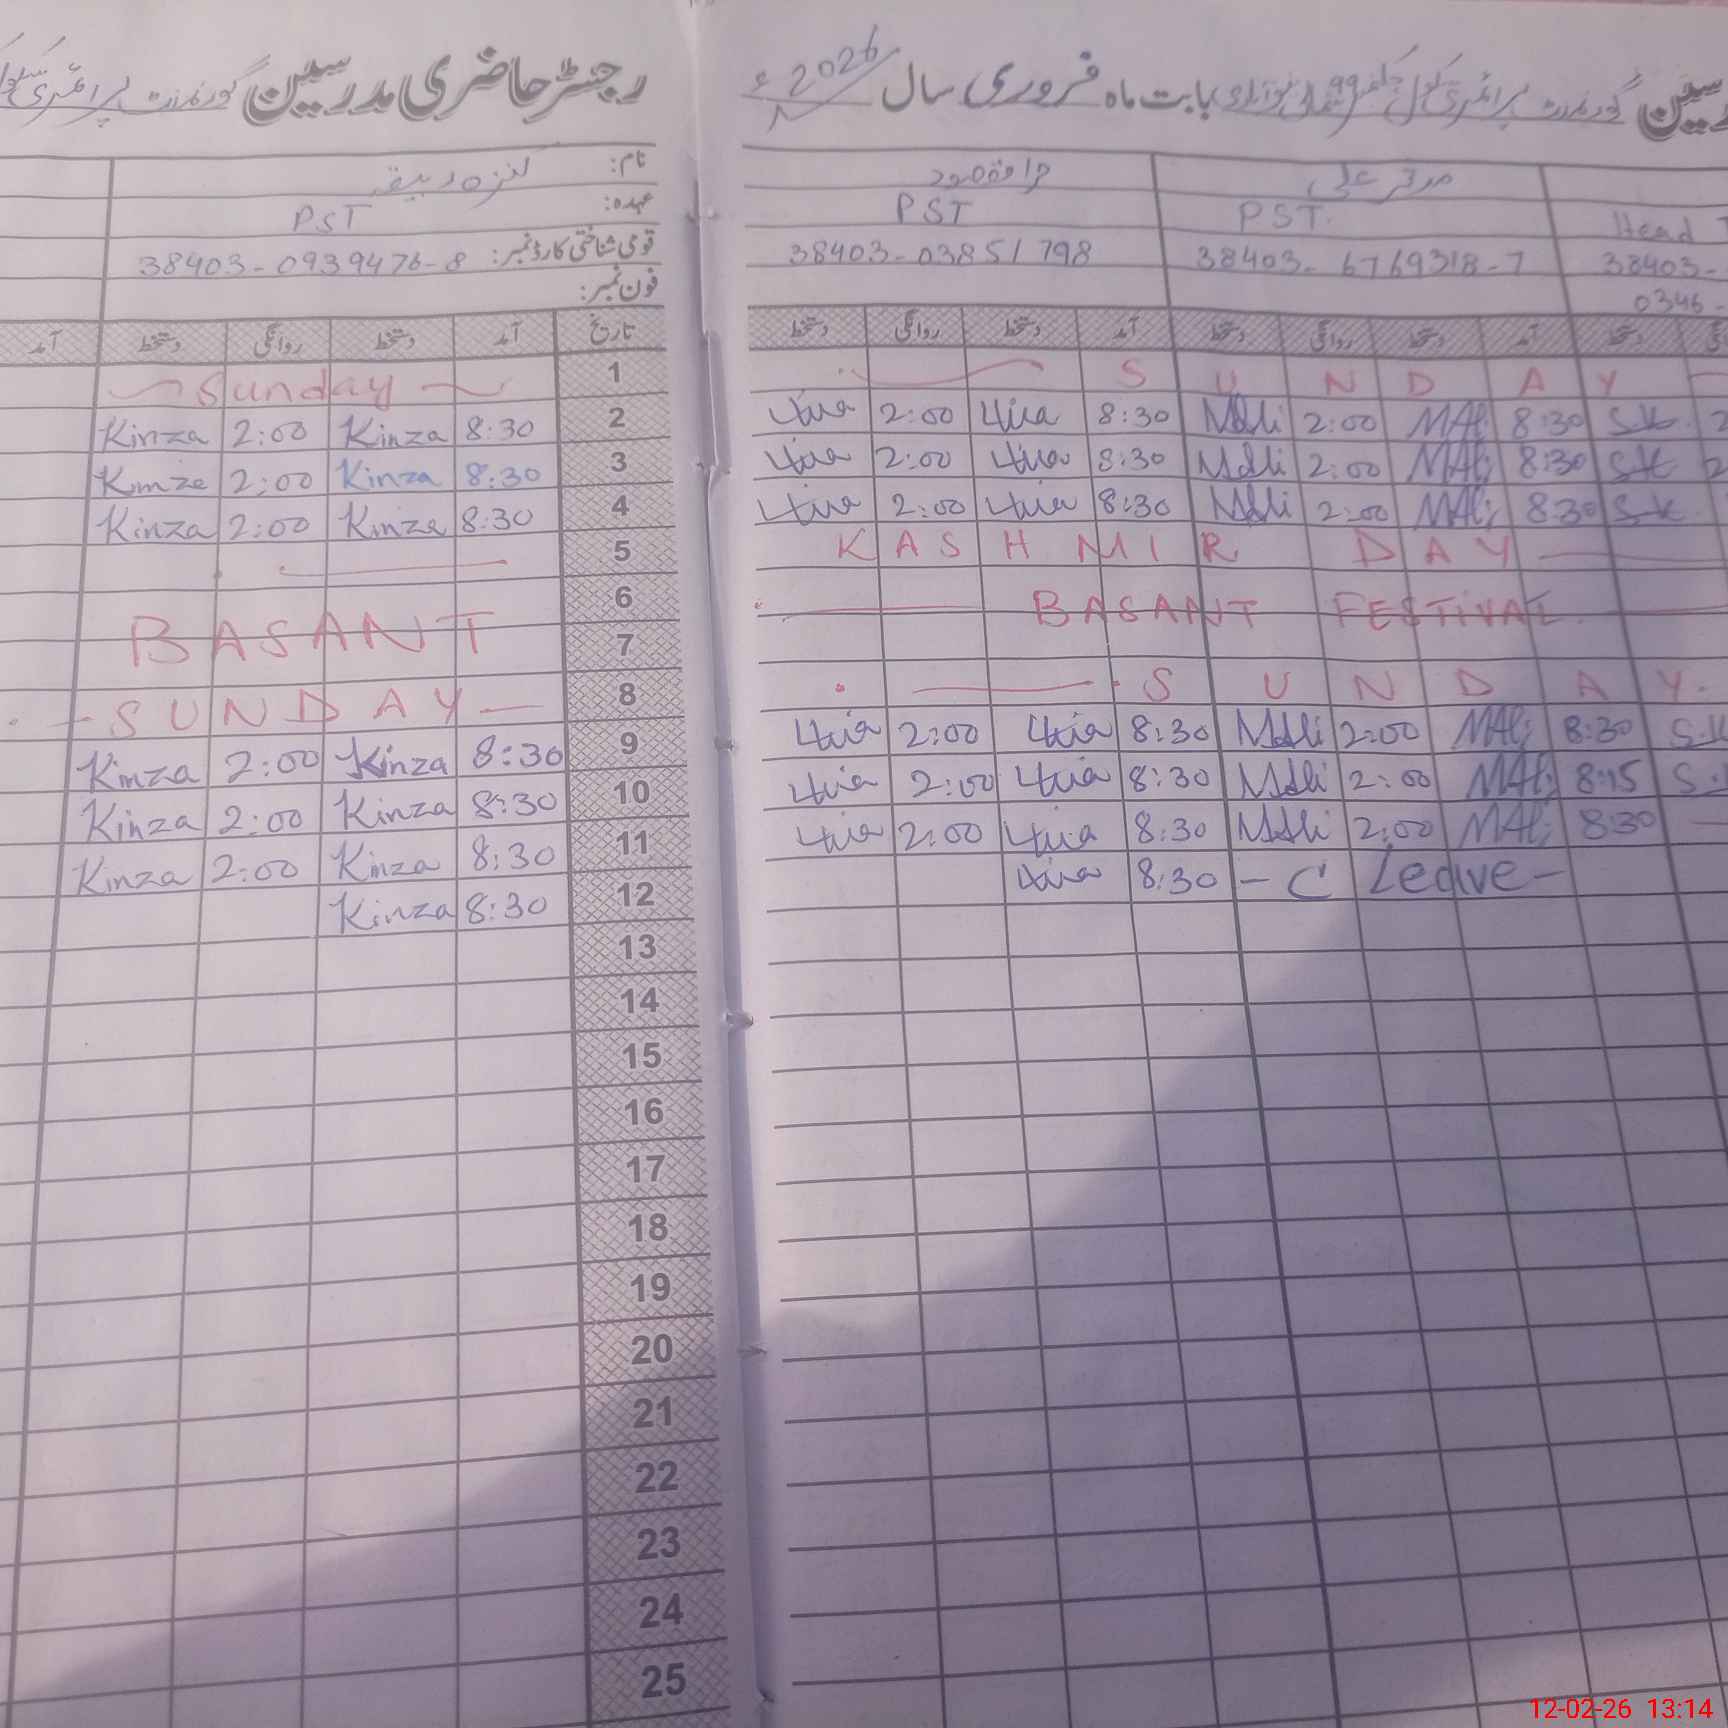 رجسٹر حاضری مدرسین گورنمنٹ پرائمری سکول
نام: کنزہ
عہدہ: PST
قومی شناختی کارڈ نمبر: 38403-0939476-8
فون نمبر:
تاریخ آمد دستخط روانگی دستخط آمد
1 Sunday
2 8:30 Kinza 2:00 Kinza
3 8:30 Kinza 2:00 Kinza
4 8:30 Kinza 2:00 Kinza
5
6
BASANT
7
8 SUNDAY
9 8:30 Kinza 2:00 Kinza
10 8:30 Kinza 2:00 Kinza
11 8:30 Kinza 2:00 Kinza
12 8:30 Kinza
13
14
15
16
17
18
19
20
21
22
23
24
25
مدرسین گورنمنٹ پرائمری سکول بابت ماہ فروری سال 2026ء
Head PST. PST
38403- 38403-6769318-7 38403-03851798
0346-
دستخط آمد دستخط روانگی دستخط آمد دستخط روانگی دستخط
SUNDAY
S.K 8:30 MAli 2:00 MAli 8:30 2:00
SK 8:30 MAli 2:00 MAli 8:30 2:00
S.K 8:30 MAli 2:00 MAli 8:30 2:00
KASHMIR DAY
BASANT FESTIVAL
SUNDAY
S.K 8:30 MAli 2:00 MAli 8:30 2:00
S. 8:15 MAli 2:00 MAli 8:30 2:00
8:30 MAli 2:00 MAli 8:30 2:00
- C Leave - 8:30
12-02-26 13:14